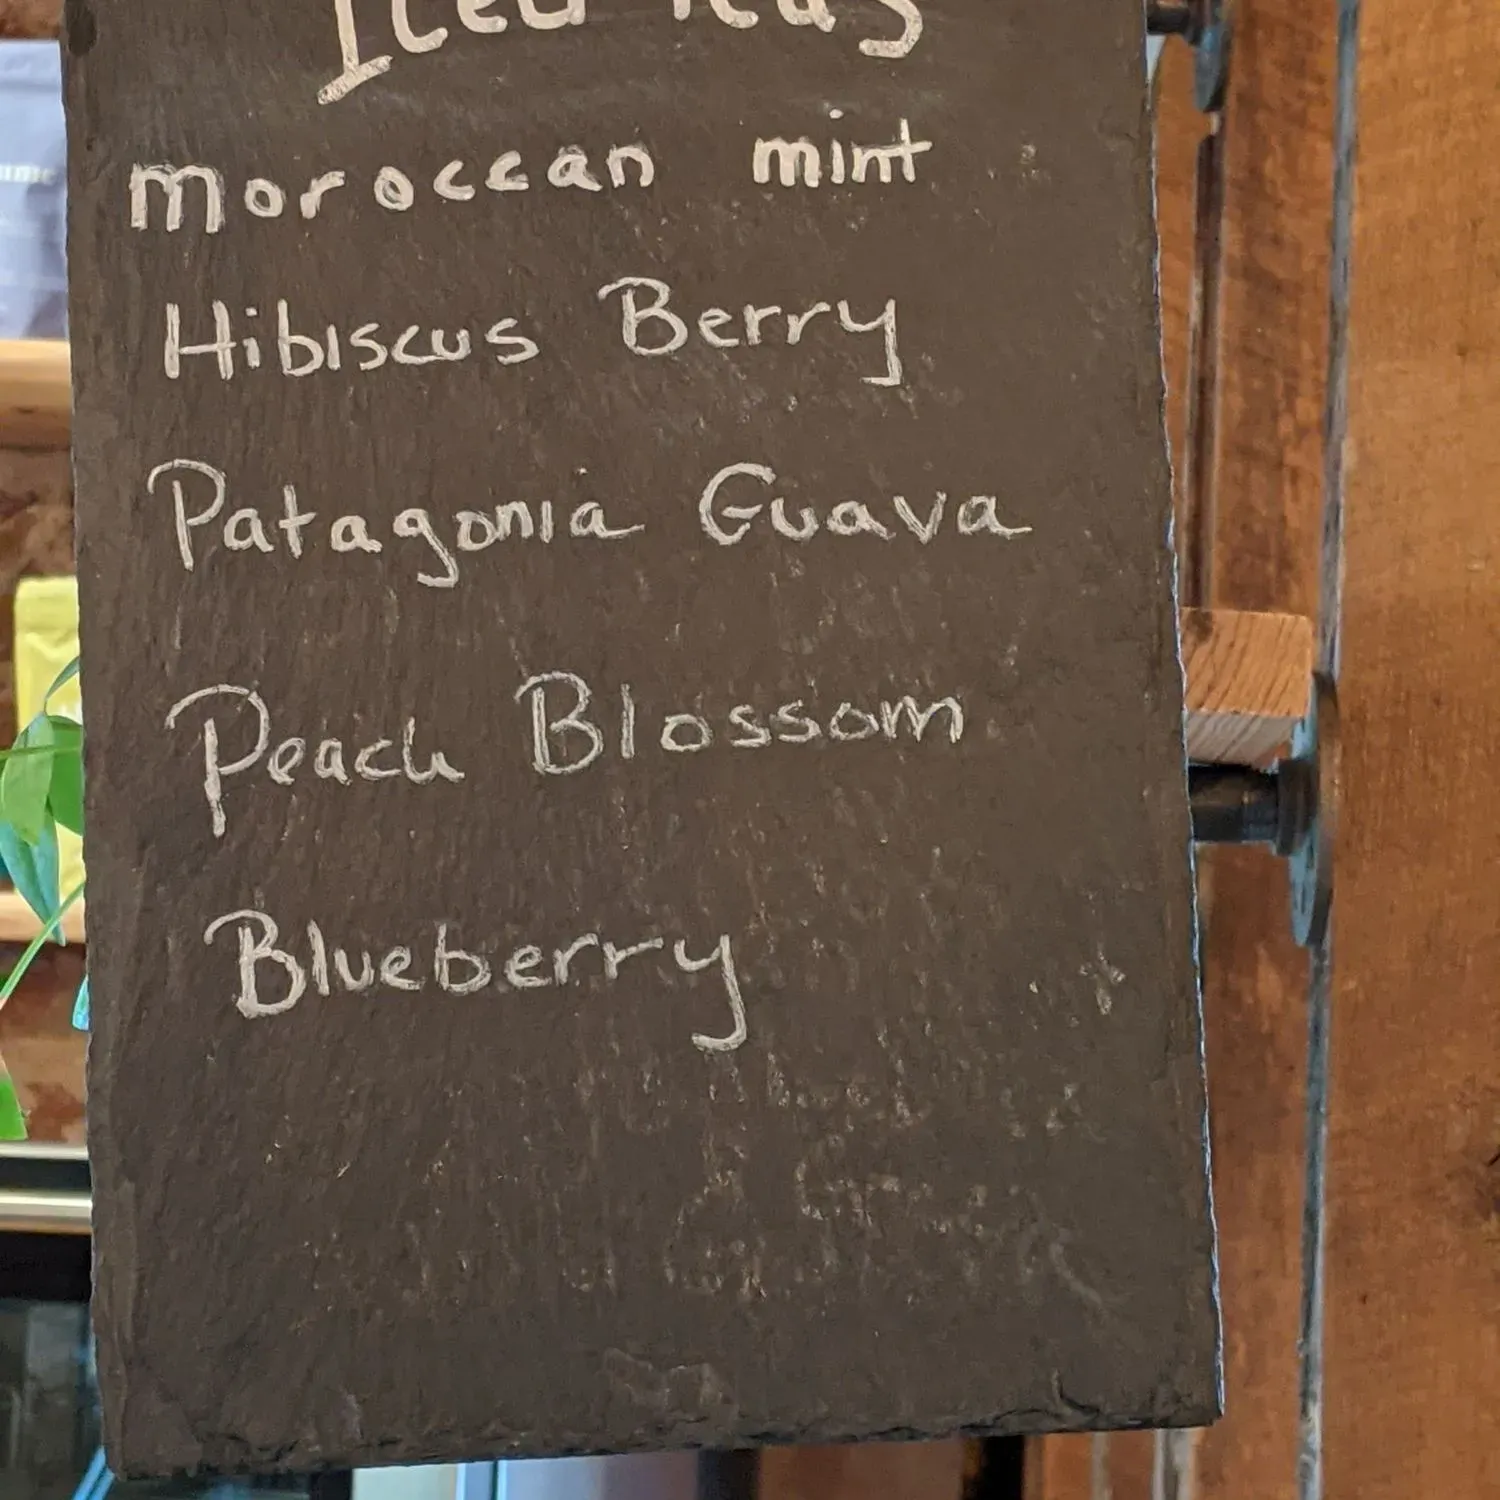 Iced Teas
moroccan mint
Hibiscus Berry
Patagonia Guava
Peach Blossom
Blueberry